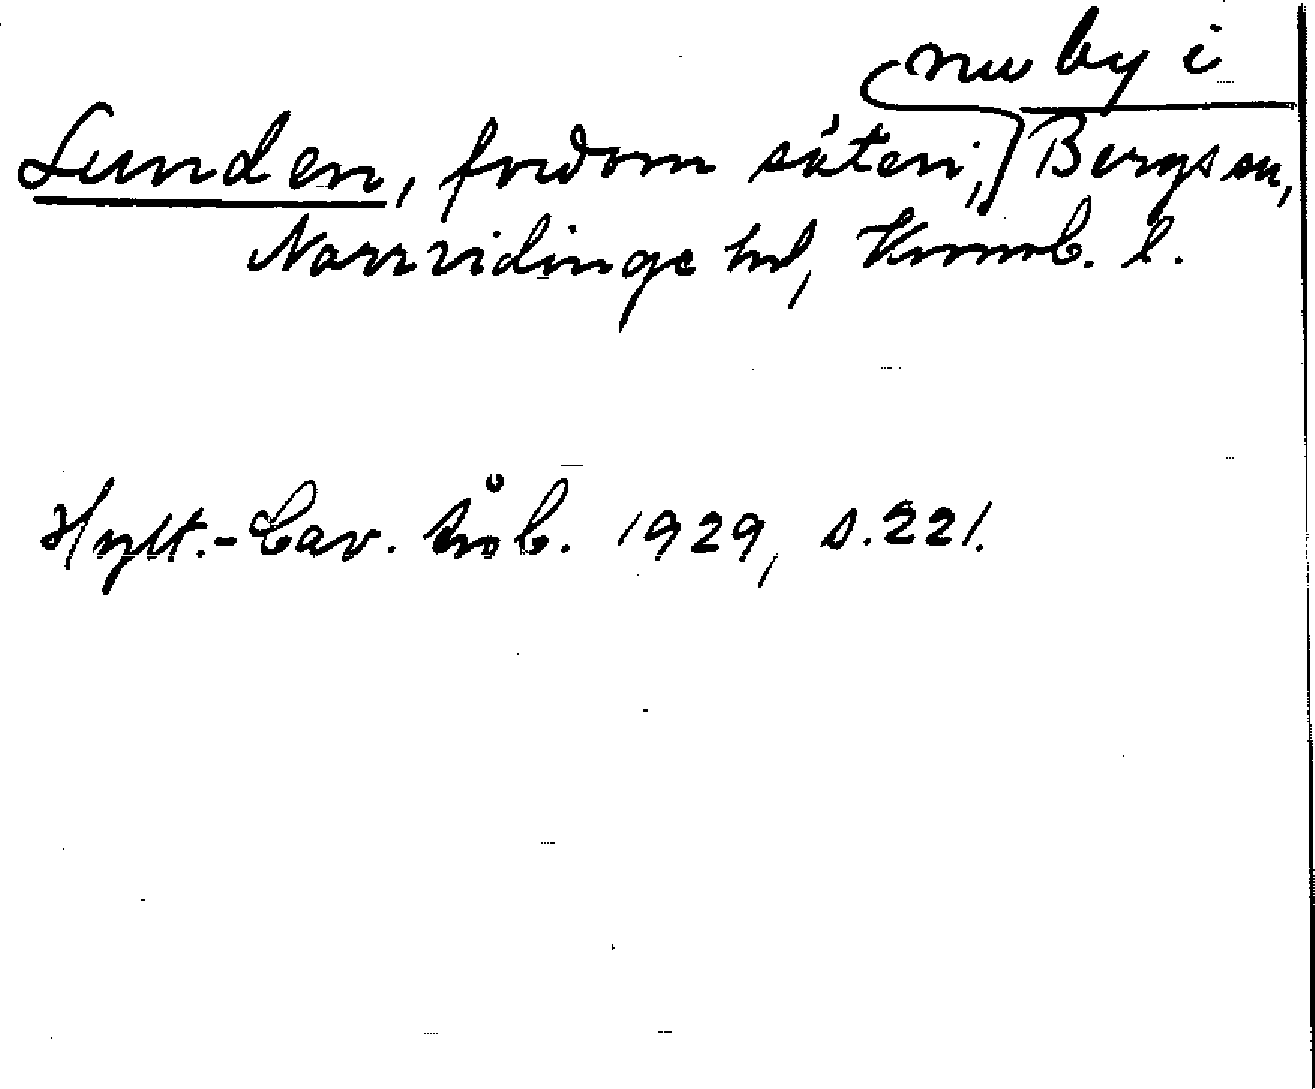 nu by i
Lunden, fordom säteri, Bergs sn,
Norrvidinge hd, Kronob. l.
Hylt.-Cav. årsb. 1929, s. 221.